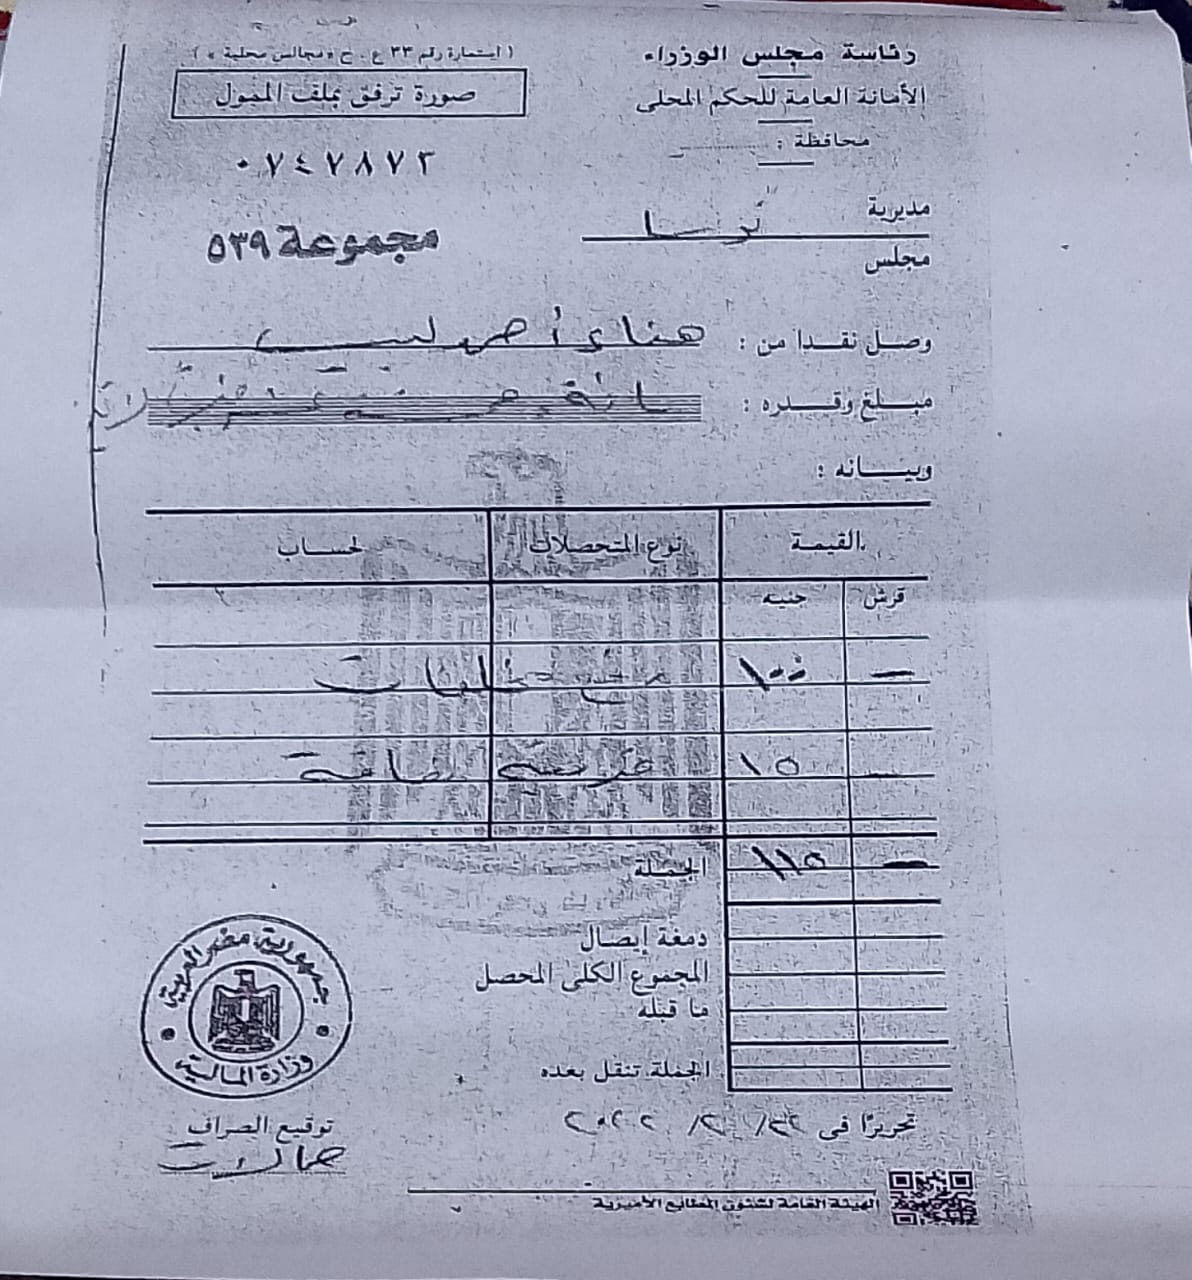 رئاسة مجلس الوزراء
الأمانة العامة للحكم المحلى
محافظة :
( استمارة رقم ٣٣ ع . ح «مجالس محلية » )
صورة ترفق بملف الممول
٠٧٤٧٨٧٢
مجموعة ٥٣٩
مديرية
مجلس
ترسا
وصل نقدا من : هناء أحمد
مبلغ وقدره : مائة وخمسة عشر
وبيانه :
القيمة نوع المتحصلات لحساب
قرش جنيه
— ١٠٠
— ١٥
— ١١٥ الجملة
دمغة إيصال
المجموع الكلى المحصل
ما قبله
الجملة تنقل بعده
جمهورية مصر العربية
وزارة المالية
تحريرًا فى
توقيع الصراف
الهيئة العامة لشئون المطابع الأميرية